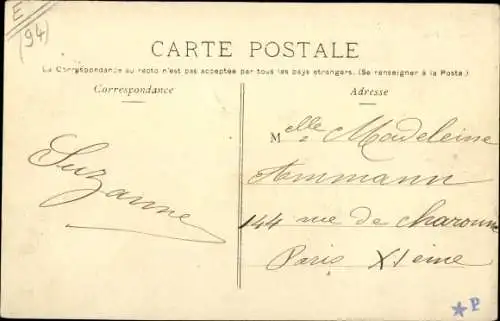 E
(94)
CARTE POSTALE
La Correspondance au recto n'est pas acceptée par tous les pays étrangers. (Se renseigner à la Poste.)
Correspondance
Adresse
Suzanne
Melle Madeleine
Ammann
144 rue de Charonne
Paris XIeme
★P